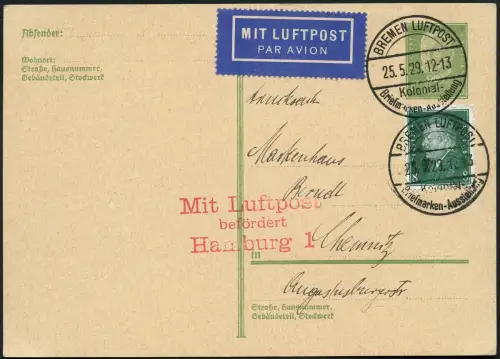 Absender:
Wohnort:
Straße, Hausnummer,
Gebäudeteil, Stockwerk
MIT LUFTPOST
PAR AVION
BREMEN LUFTPOST
25.5.29.12-13
Kolonial-
Briefmarken-Ausstellung
BREMEN LUFTPOST
Kolonial-
Briefmarken-Ausstellung
Drucksache
Markenhaus
Berndt
Mit Luftpost
befördert
Hamburg 1
Chemnitz
in
Augustusburgerstr
Straße, Hausnummer,
Gebäudeteil, Stockwerk